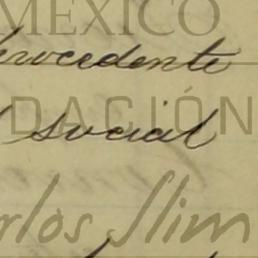 MÉXICO
procedente
DACIÓN
social
rlos Slim